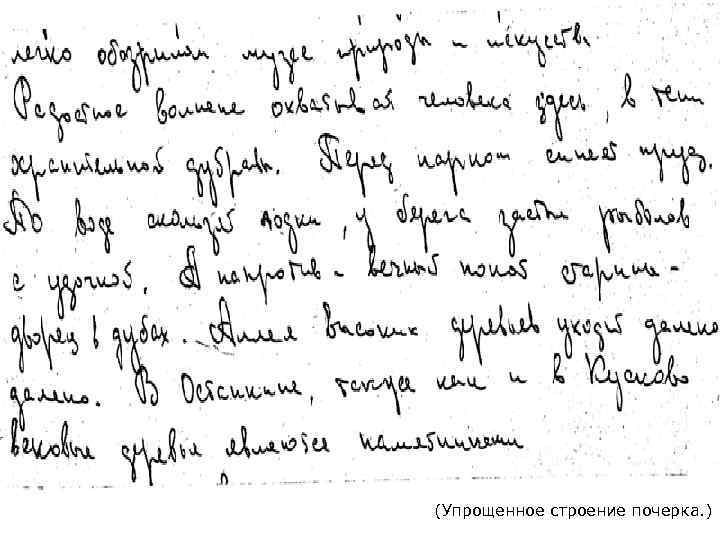 легко обозримым музее природы и искусств.
Радостное волнение охватывает человека здесь, в тени
хранительной дубравы. Перед парком синеет пруд.
По воде скользят лодки, у берега застыл рыболов
с удочкой. А напротив - вечный покой старины -
дворец в дубах. Аллея высоких деревьев уходит далеко
далеко. В Останкине, также как и в Кусково
вековые деревья являются памятниками
(Упрощенное строение почерка.)